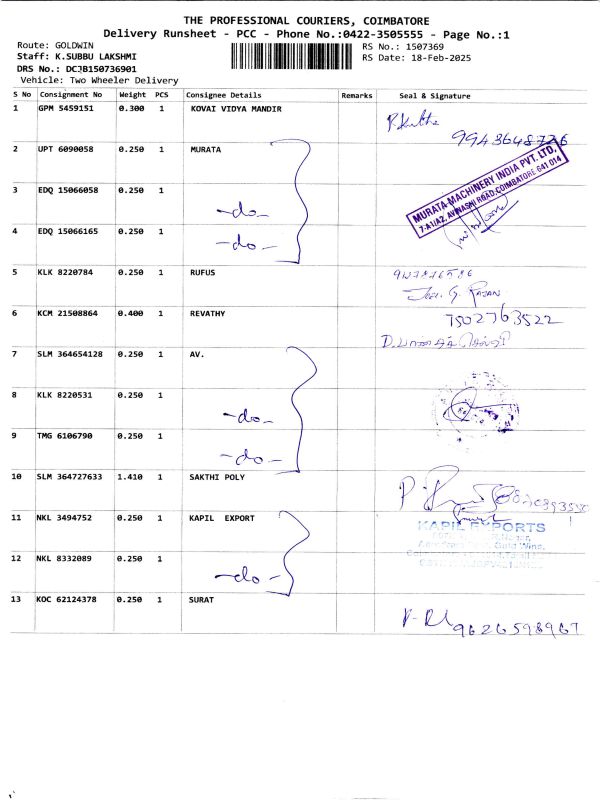 THE PROFESSIONAL COURIERS, COIMBATORE
Delivery Runsheet - PCC - Phone No.:0422-3505555 - Page No.:1
Route: GOLDWIN
RS No.: 1507369
Staff: K.SUBBU LAKSHMI
RS Date: 18-Feb-2025
DRS No.: DCJB150736901
Vehicle: Two Wheeler Delivery
S No Consignment No Weight PCS Consignee Details Remarks Seal & Signature
1 GPM 5459151 0.300 1 KOVAI VIDYA MANDIR
9943648726
2 UPT 6090058 0.250 1 MURATA
MURATA MACHINERY INDIA PVT. LTD,
7-A1/A2, AVINASHI ROAD, COIMBATORE 641 014
3 EDQ 15066058 0.250 1
-do-
4 EDQ 15066165 0.250 1
-do-
5 KLK 8220784 0.250 1 RUFUS
Joel G. Rajan
6 KCM 21508864 0.400 1 REVATHY
7502763522
7 SLM 364654128 0.250 1 AV.
8 KLK 8220531 0.250 1
-do-
9 TMG 6106790 0.250 1
-do-
10 SLM 364727633 1.410 1 SAKTHI POLY
11 NKL 3494752 0.250 1 KAPIL EXPORT
KAPIL EXPORTS
12 NKL 8332089 0.250 1
-do-
13 KOC 62124378 0.250 1 SURAT
9626598967